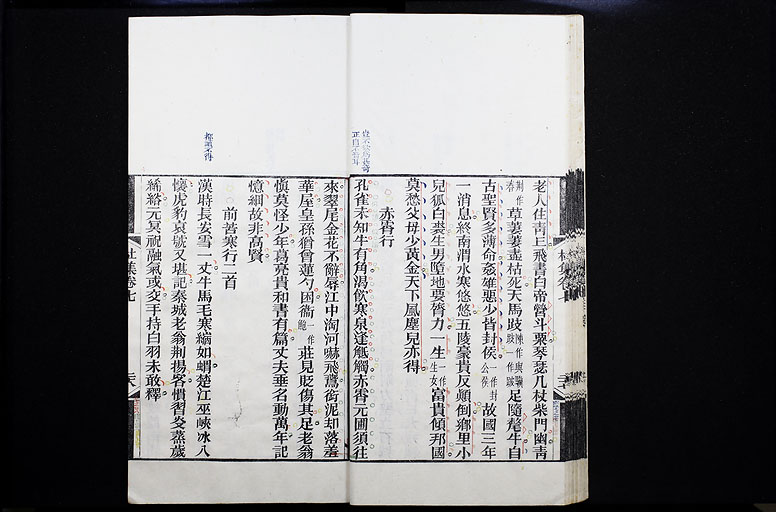 老人住靑丘飛書白帝營斗粟琴瑟几杖柴門幽靑
荆作春草萋萋盡枯死天馬跂陳作與驥跂一作跛足隨氂牛自
古聖賢多薄命姦雄惡少皆封侯一作封公侯故國三年
一消息終南渭水寒悠悠五陵豪貴反顛倒鄉里小
兒狐白裘生男墮地要膂力一生一作生女富貴傾邦國
莫愁父母少黃金天下風塵兒亦得
赤霄行
孔雀未知牛有角渴飲寒泉逢觝觸赤霄元圃須往
來翠尾金花不辭辱江中淘河嚇飛鷰銜泥却落羞
華屋皇孫猶曾蓮勺困衞一作鮑莊見貶傷其足老翁
愼莫怪少年葛亮貴和書有篇丈夫垂名動萬年記
憶細故非高賢
前苦寒行二首
漢時長安雪一丈牛馬毛寒縮如蝟楚江巫峽冰入
懷虎豹哀號又堪記秦城老翁荆揚客慣習炎蒸歲
絺綌元冥祝融氣或交手持白羽未敢釋
杜集卷七